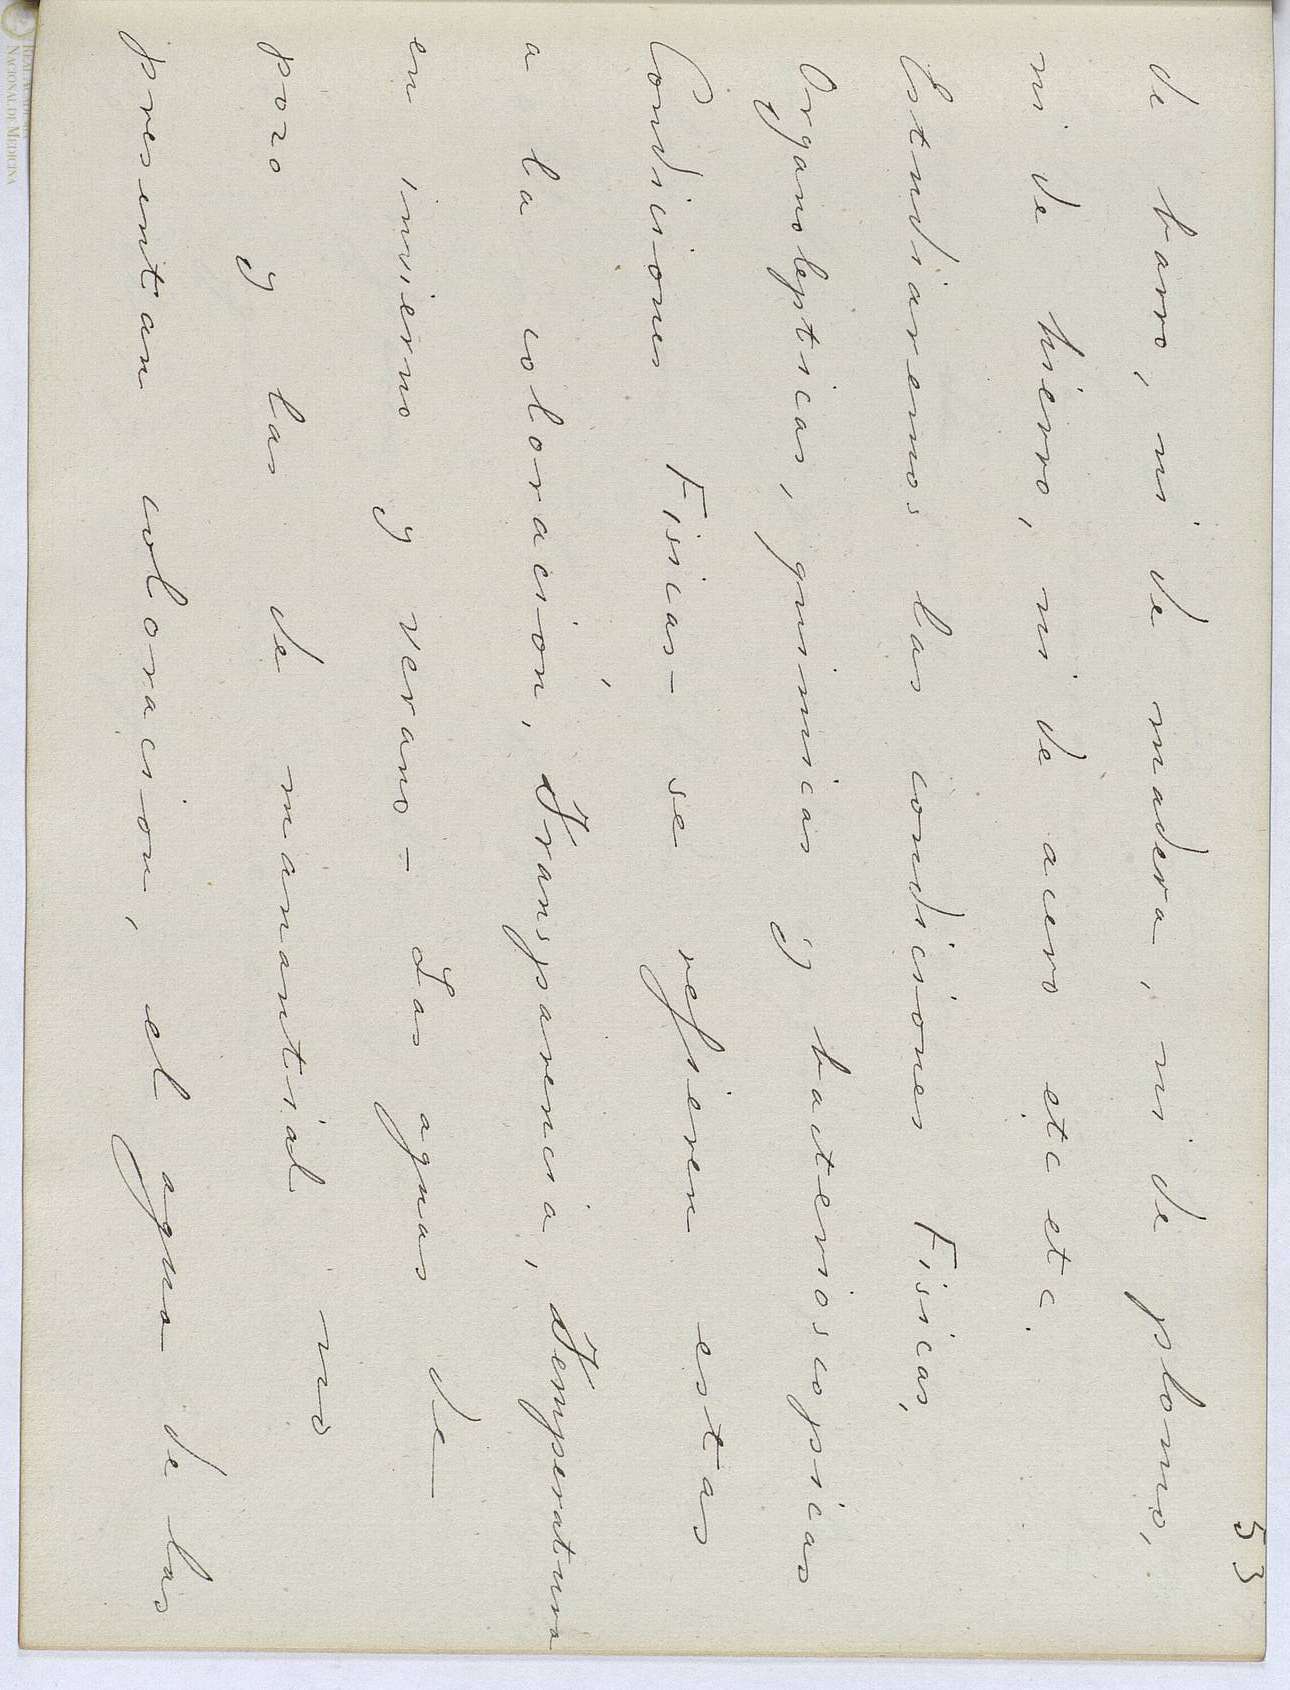 53
de barro, ni de madera, ni de plomo,
ni de hierro, ni de acero etc etc.
Estudiaremos las condiciones Fisicas,
Organolepticas, quimicas y bacterioscopicas
Condiciones Fisicas - se refieren estas
a la coloración, Transparencia, Temperatura
en invierno y verano - Las aguas de
pozo y las de manantial no
presentan coloracion, el agua de las
REAL ACADEMIA
NACIONAL DE MEDICINA